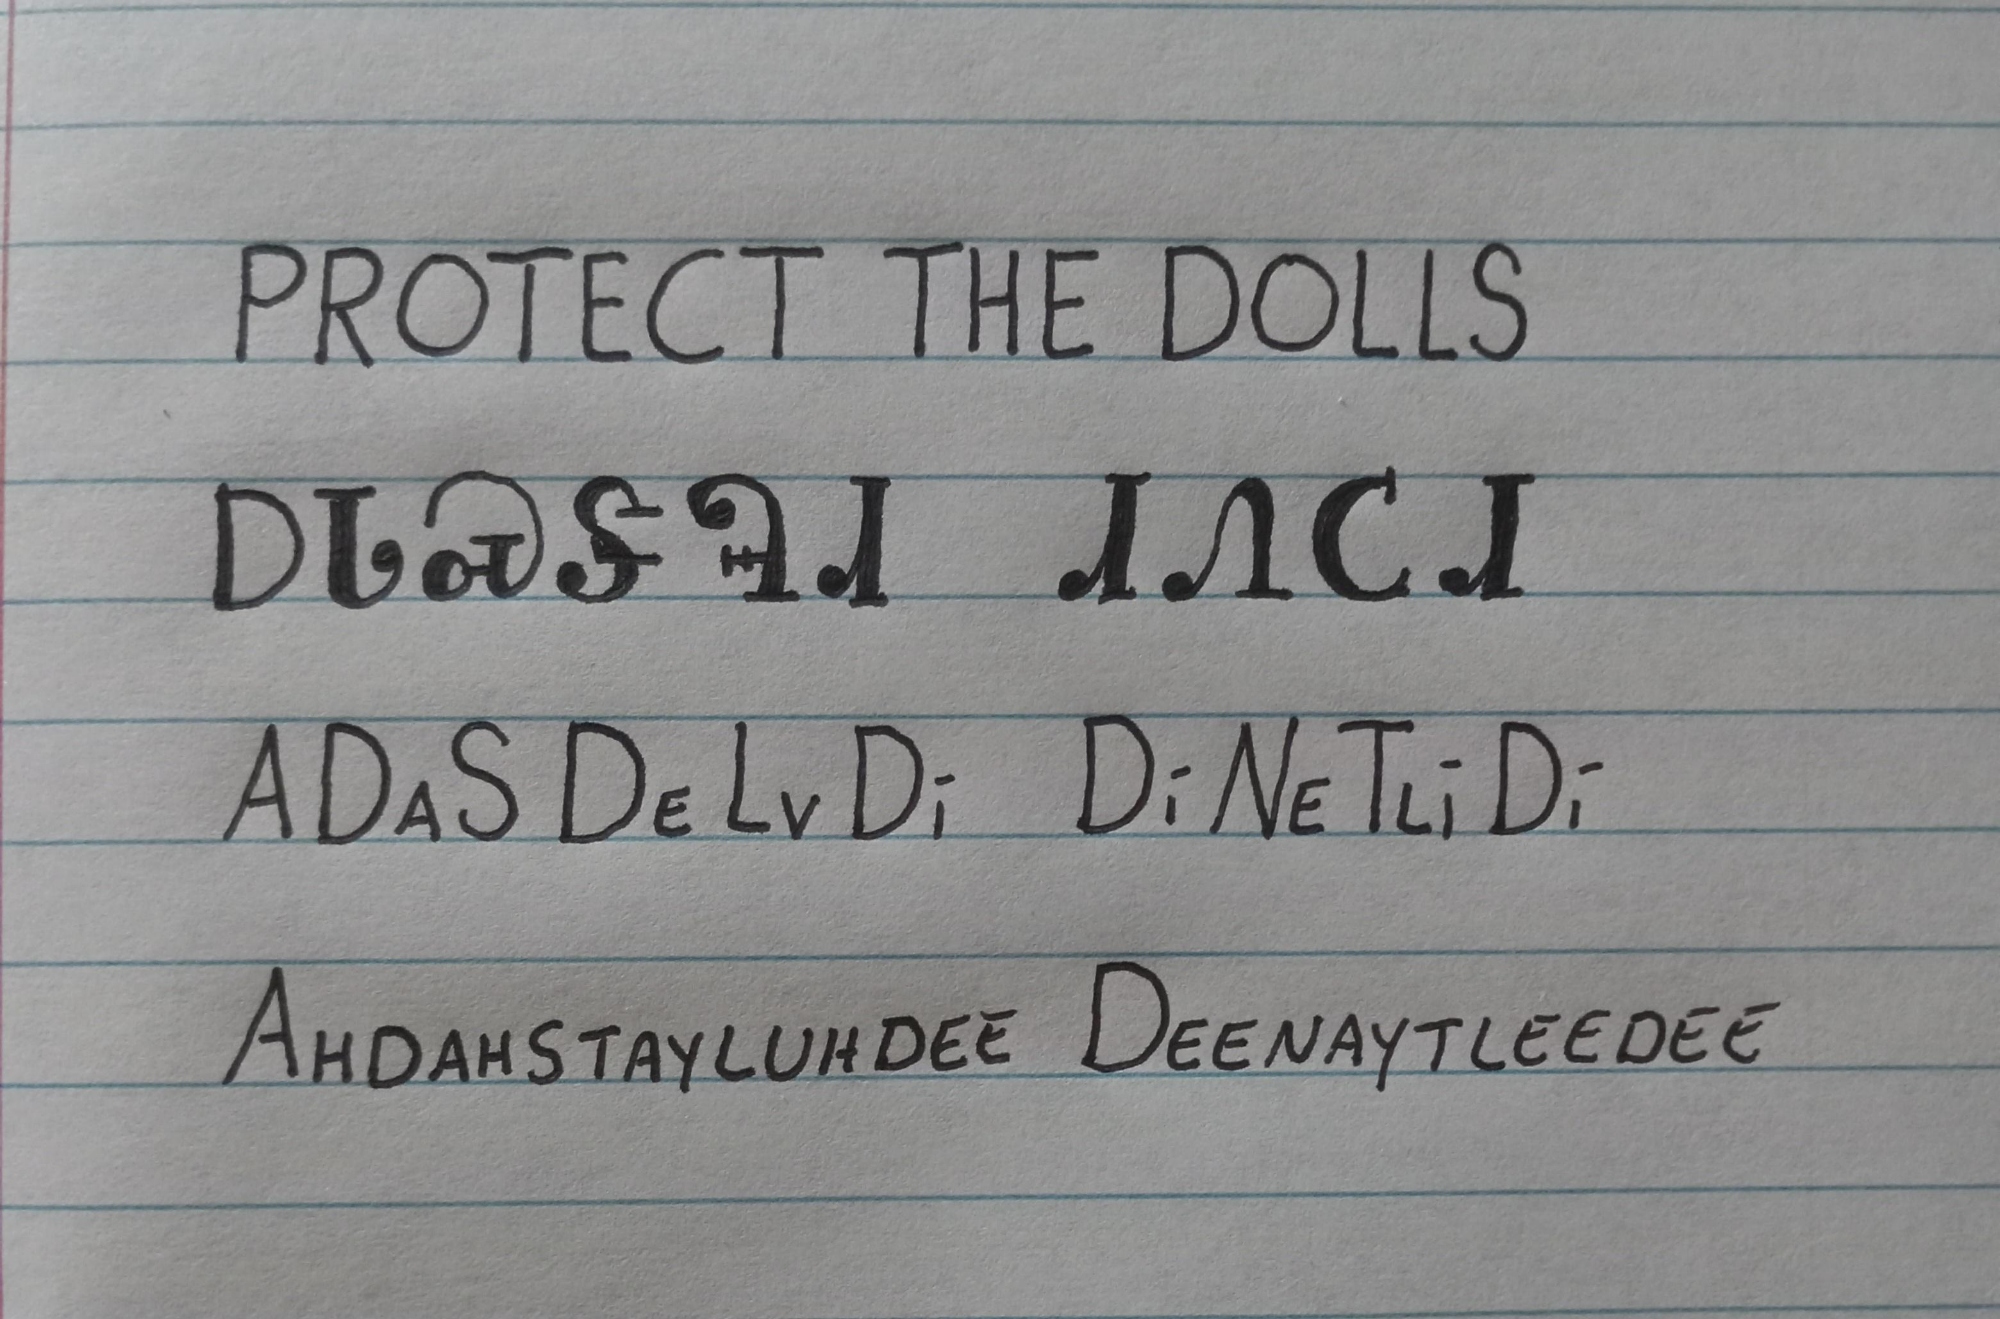 PROTECT THE DOLLS
ᎠᏓᏍᏕᎸᏗ ᏗᏁᏟᏗ
ADASDELVDi DiNETLiDi
AHDAHSTAYLUHDEE DEENAYTLEEDEE